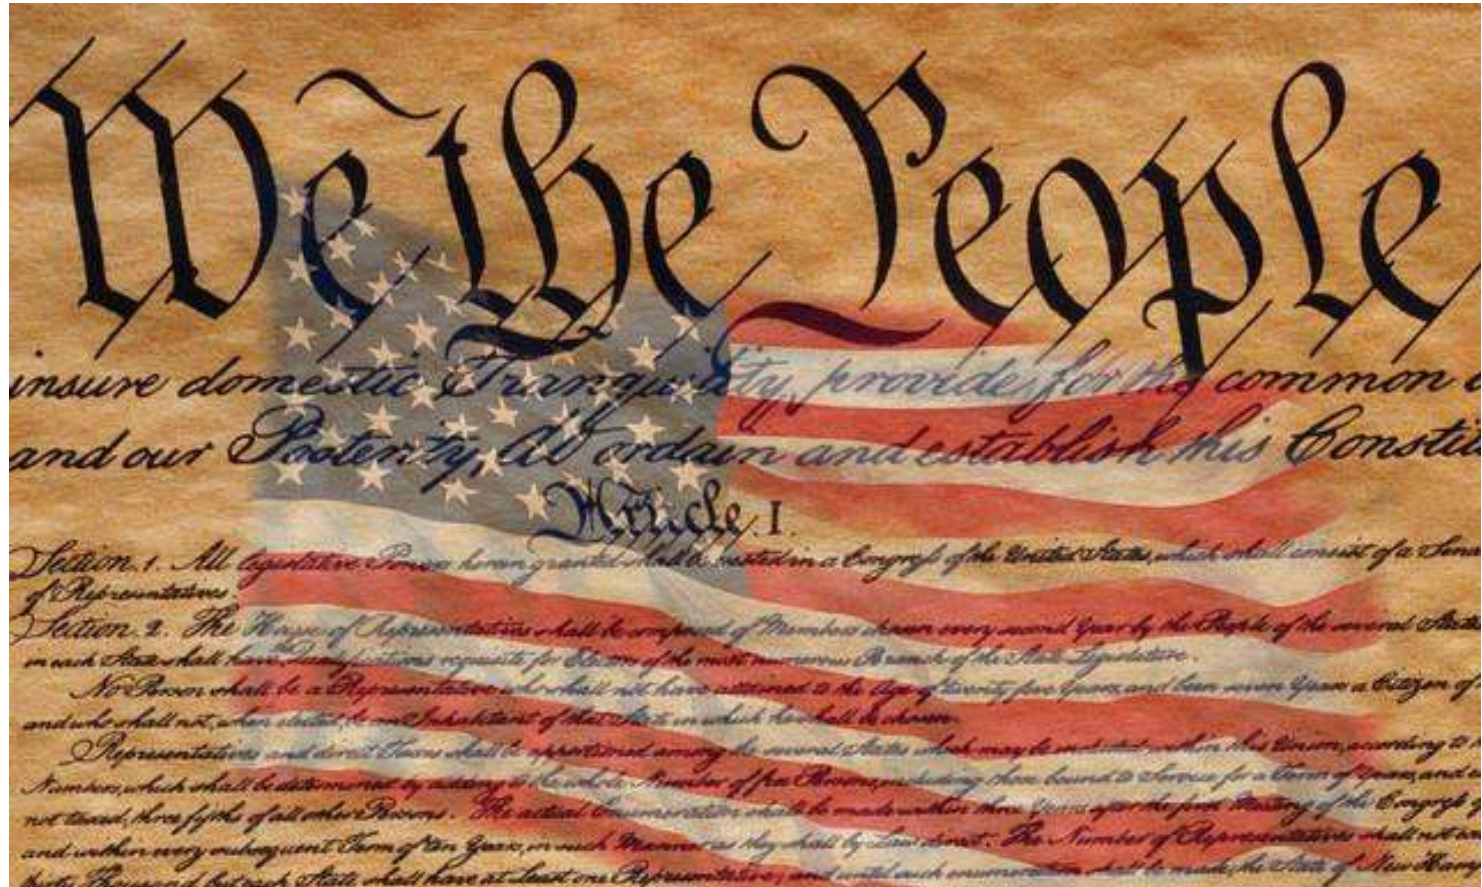 We the People
insure domestic Tranquility, provide for the common
and our Posterity, do ordain and establish this Constitu
Article. I.
Section. 1. All legislative Powers herein granted shall be vested in a Congress of the United States, which shall consist of a Sena
of Representatives.
Section. 2. The House of Representatives shall be composed of Members chosen every second Year by the People of the several States
in each State shall have Qualifications requisite for Electors of the most numerous Branch of the State Legislature.
No Person shall be a Representative who shall not have attained to the Age of twenty five Years, and been seven Years a Citizen of
and who shall not, when elected, be an Inhabitant of that State in which he shall be chosen.
Representatives and direct Taxes shall be apportioned among the several States which may be included within this Union, according to
Numbers, which shall be determined by adding to the whole Number of free Persons, including those bound to Service for a Term of Years, and
not taxed, three fifths of all other Persons. The actual Enumeration shall be made within three Years after the first Meeting of the Congress
and within every subsequent Term of ten Years, in such Manner as they shall by Law direct. The Number of Representatives shall not
thirty Thousand, but each State shall have at Least one Representative; and until such enumeration shall be made, the State of New Hamp